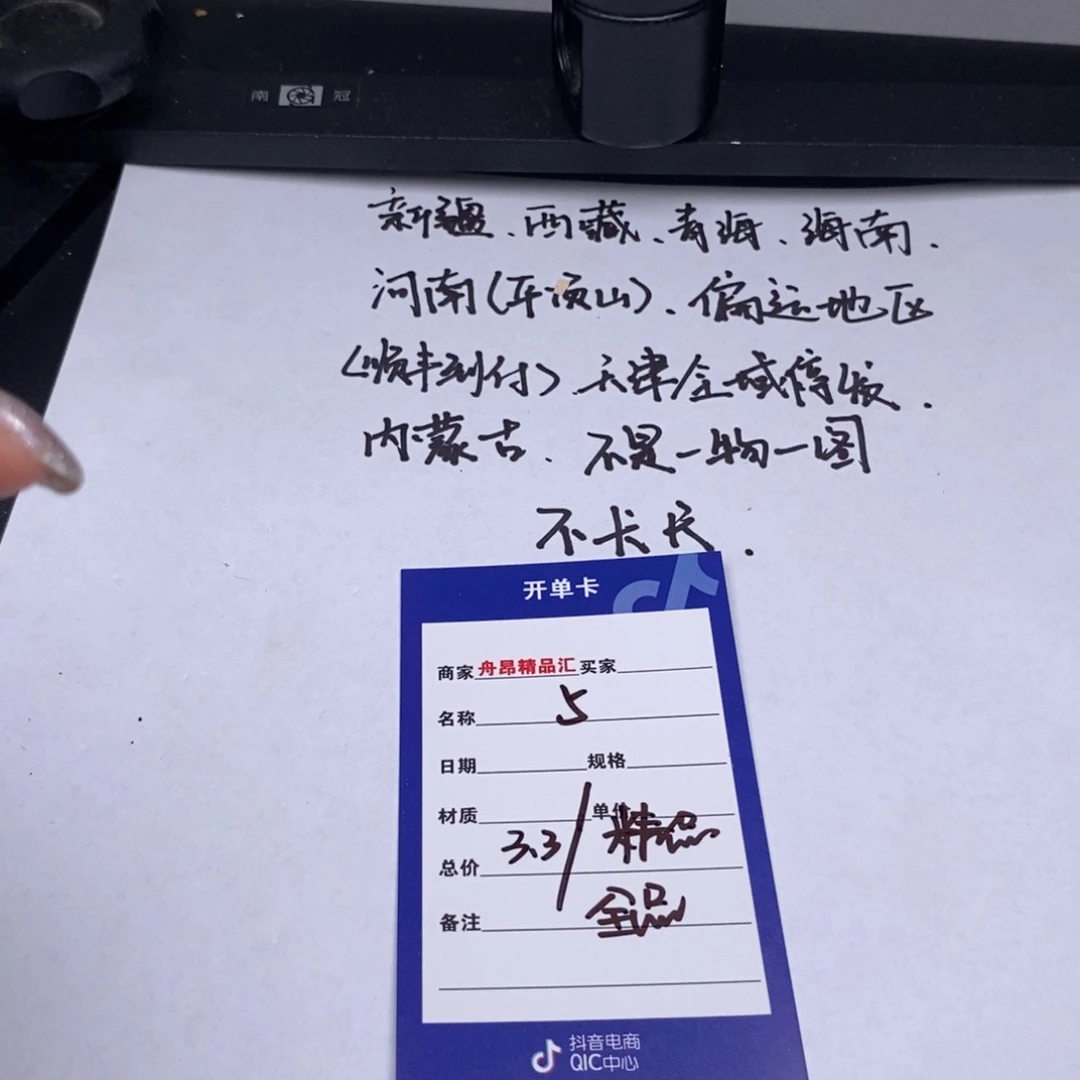 南 冠
新疆、西藏、青海、海南.
河南(平顶山)、偏远地区
(顺丰到付)天津全域停发.
内蒙古. 不是一物一图
不卡长.
开单卡
商家 舟昂精品汇 买家
名称 5
日期 规格
材质 单价
总价 3.3/精品
备注 全品
抖音电商
QIC中心